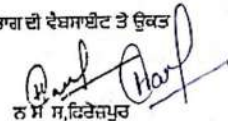 ਭਾਗ ਦੀ ਵੈਬਸਾਈਟ ਤੇ ਉਕਤ
ਨ ਸ ਸ,ਫਿਰੋਜ਼ਪੁਰ